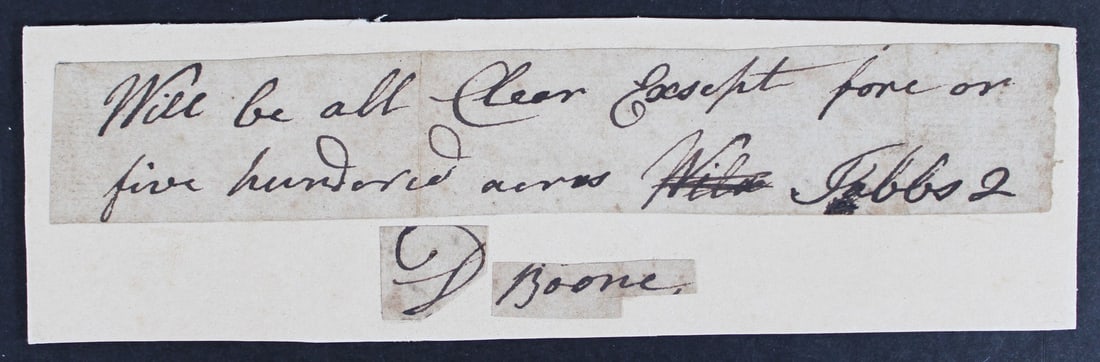 Will be all Clear Exsept fore or
five hundered acres Tobbs 2
D Boone